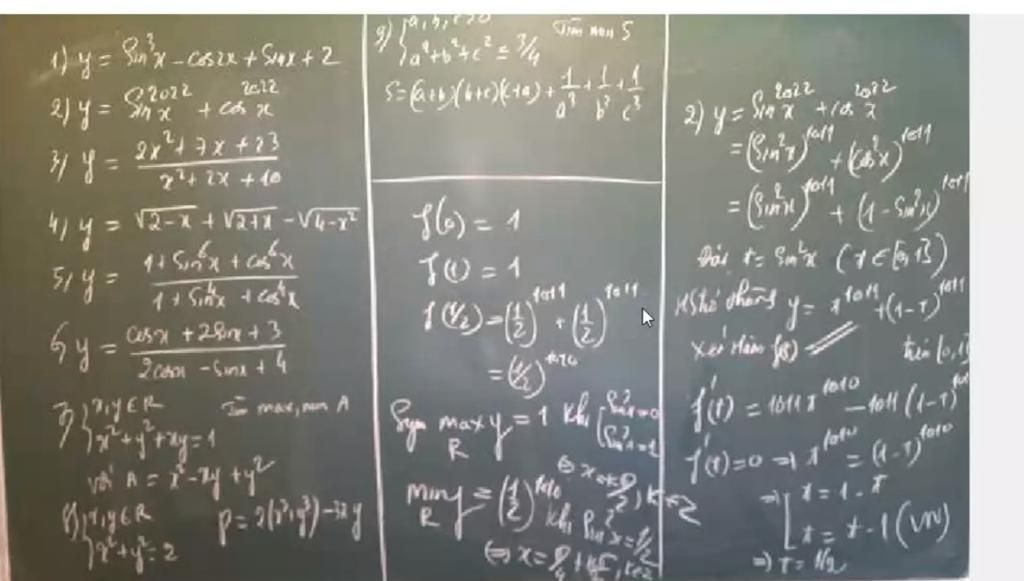 1) y = Sin³x - cos2x + Sinx + 2
2) y = Sin²⁰²²x + cos²⁰²²x
3) y = (2x² + 7x + 23)/(x² + 2x + 10)
4) y = √(2-x) + √(2+x) - √(4-x²)
5) y = (1 + Sin⁶x + cos⁶x)/(1 + Sin⁴x + cos⁴x)
6) y = (cosx + 2Sinx + 3)/(2cosx - Sinx + 4)
7) { x,y ∈ R Tìm max, min A
x² + y² + xy = 1
với A = x² - xy + y²
8) { x,y ∈ R P = 2(x³+y³) - 3xy
x² + y² = 2
9) { a, b, c > 0 Tìm min S
a² + b² + c² = 3/4
S = (a+b)(b+c)(c+a) + 1/a³ + 1/b³ + 1/c³
f(0) = 1
f(1) = 1
f(1/2) = (1/2)¹⁰¹¹ + (1/2)¹⁰¹¹
= (1/2)¹⁰¹⁰
Suy max y = 1 khi [ Sin²x=0
R Sin²x=1
⇔ x = k π/2, k∈Z
min y = (1/2)¹⁰¹⁰ khi Sin²x = 1/2
R
⇔ x = π/4 + kπ/2, k∈Z
2) y = Sin²⁰²²x + cos²⁰²²x
= (Sin²x)¹⁰¹¹ + (cos²x)¹⁰¹¹
= (Sin²x)¹⁰¹¹ + (1 - Sin²x)¹⁰¹¹
Đặt t = Sin²x (t ∈ [0,1])
y = t¹⁰¹¹ + (1-t)¹⁰¹¹
Xét hàm f(t) trên [0,1]
f'(t) = 1011t¹⁰¹⁰ - 1011(1-t)¹⁰¹⁰
f'(t) = 0 ⇒ t¹⁰¹⁰ = (1-t)¹⁰¹⁰
⇒ [ t = 1 - t
t = t - 1 (VN)
⇒ t = 1/2